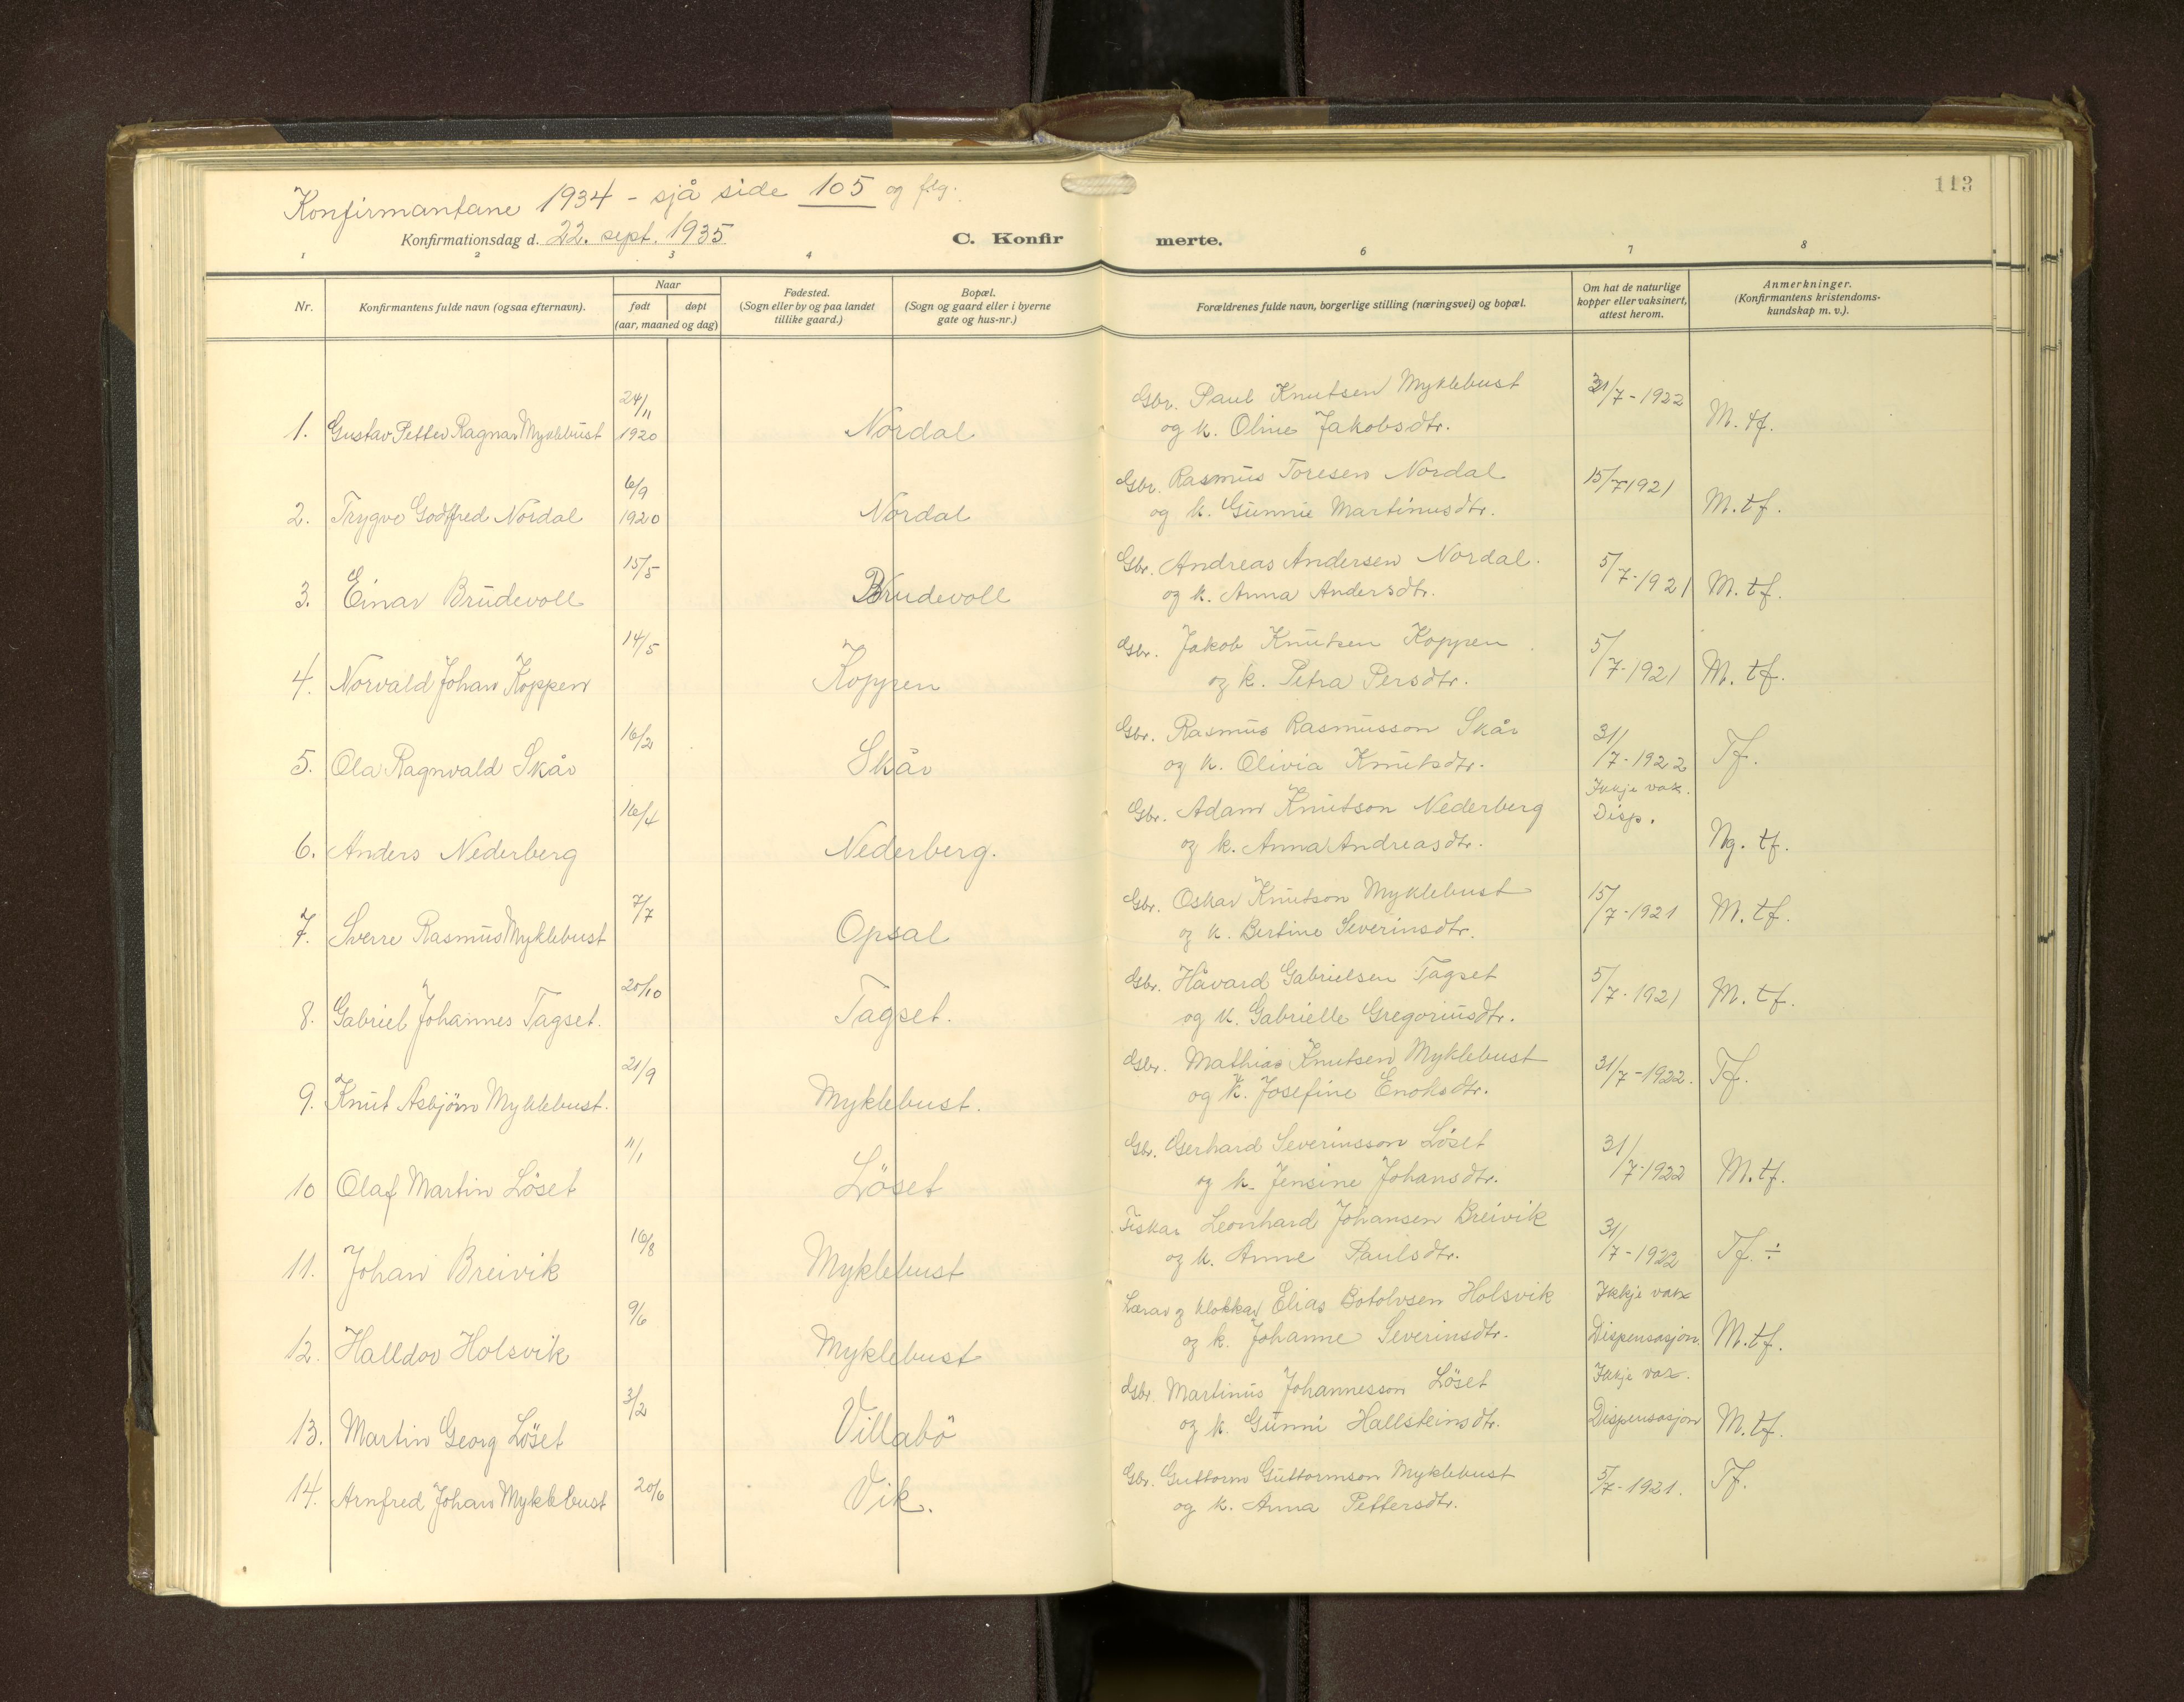 Konfirmantane 1934 - sjå side 105 og flg.
113
Konfirmationsdag d. 22. sept. 1935
C. Konfirmerte.
1 2 3 4 5 6 7 8
Nr.
Konfirmantens fulde navn (ogsaa efternavn).
Naar
født døpt
(aar, maaned og dag)
Fødested.
(Sogn eller by og paa landet
tillike gaard.)
Bopæl.
(Sogn og gaard eller i byerne
gate og hus-nr.)
Forældrenes fulde navn, borgerlige stilling (næringsvei) og bopæl.
Om hat de naturlige
kopper eller vaksinert,
attest herom.
Anmerkninger.
(Konfirmantens kristendoms-
kundskap m. v.).
24/11 Gbr. Paul Knutsen Myklebust 31/7-1922
1. Gustav Petter Ragnar Myklebust 1920 Nordal og k. Oline Jakobsdtr. M. tf.
6/9 Gbr. Rasmus Toresen Nordal 15/7 1921
2. Trygve Godtfred Nordal 1920 Nordal og k. Gunnie Martinusdtr. M. tf.
15/5 Gbr. Andreas Andersen Nordal. 5/7-1921
3. Einar Brudevoll Brudevoll og k. Anna Andersdtr. M. tf.
14/5 Gbr. Jakob Knutsen Koppen 5/7-1921
4. Norvald Johan Koppen Koppen og k. Petra Persdtr. M. tf.
16/2 Gbr. Rasmus Rasmusson Skår 31/7-1922
5. Ola Ragnvald Skår Skår og k. Olivia Knutsdtr. Tf.
16/4 Gbr. Adam Knutson Nederberg Ikkje vak. Disp.
6. Anders Nederberg Nederberg. og k. Anna Andreasdtr. Ng. tf.
7/7 Gbr. Oskar Knutson Myklebust 15/7-1921
7. Sverre Rasmus Myklebust Opsal og k. Bertine Severinsdtr. M. tf.
20/10 Gbr. Håvard Gabrielsen Tagset 5/7-1921
8. Gabriel Johannes Tagset. Tagset. og k. Gabrielle Gregoriusdtr. M. tf.
21/9 Gbr. Mathias Knutsen Myklebust 31/7-1922.
9. Knut Asbjörn Myklebust. Myklebust. og k. Josefine Enoksdtr. Tf.
11/1 Gbr. Gerhard Severinsson Löset 31/7-1922
10 Olaf Martin Löset Löset og k. Jensine Johansdtr. M. tf.
16/8 Fiskar Leonhard Johansen Breivik 31/7-1922
11. Johan Breivik Myklebust og k. Anne Paulsdtr. Tf. ÷
9/6 Lærar og klokkar Elias Botolvsen Holsvik Ikkje vax
12. Halldor Holsvik Myklebust og k. Johanne Severinsdtr. Dispensasjon. M. tf.
3/2 Gbr. Martinus Johannesson Löset Ikkje vax.
13. Martin Georg Löset Villabö og k. Gunni Hallsteinsdtr. Dispensasjon M. tf.
20/6 Gbr. Guttorm Guttormson Myklebust 5/7-1921.
14. Arnfred Johan Myklebust Vik. og k. Anna Pettersdtr. Tf.